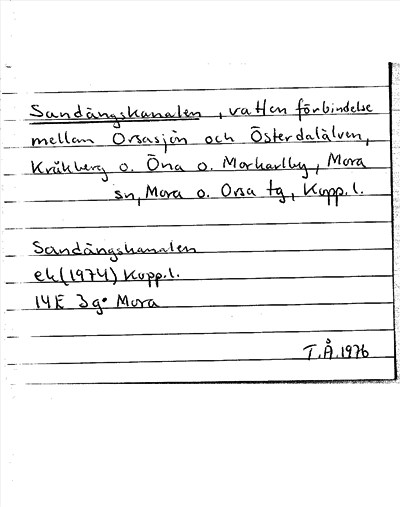 Sandängskanalen, vattenförbindelse
mellan Orsasjön och Österdalälven,
Kråkberg o. Öna o. Morkarlby, Mora
sn, Mora o. Orsa tg, Kopp.l.
Sandängskanalen
ek (1974) Kopp.l.
14E 3g• Mora
T.Å. 1976